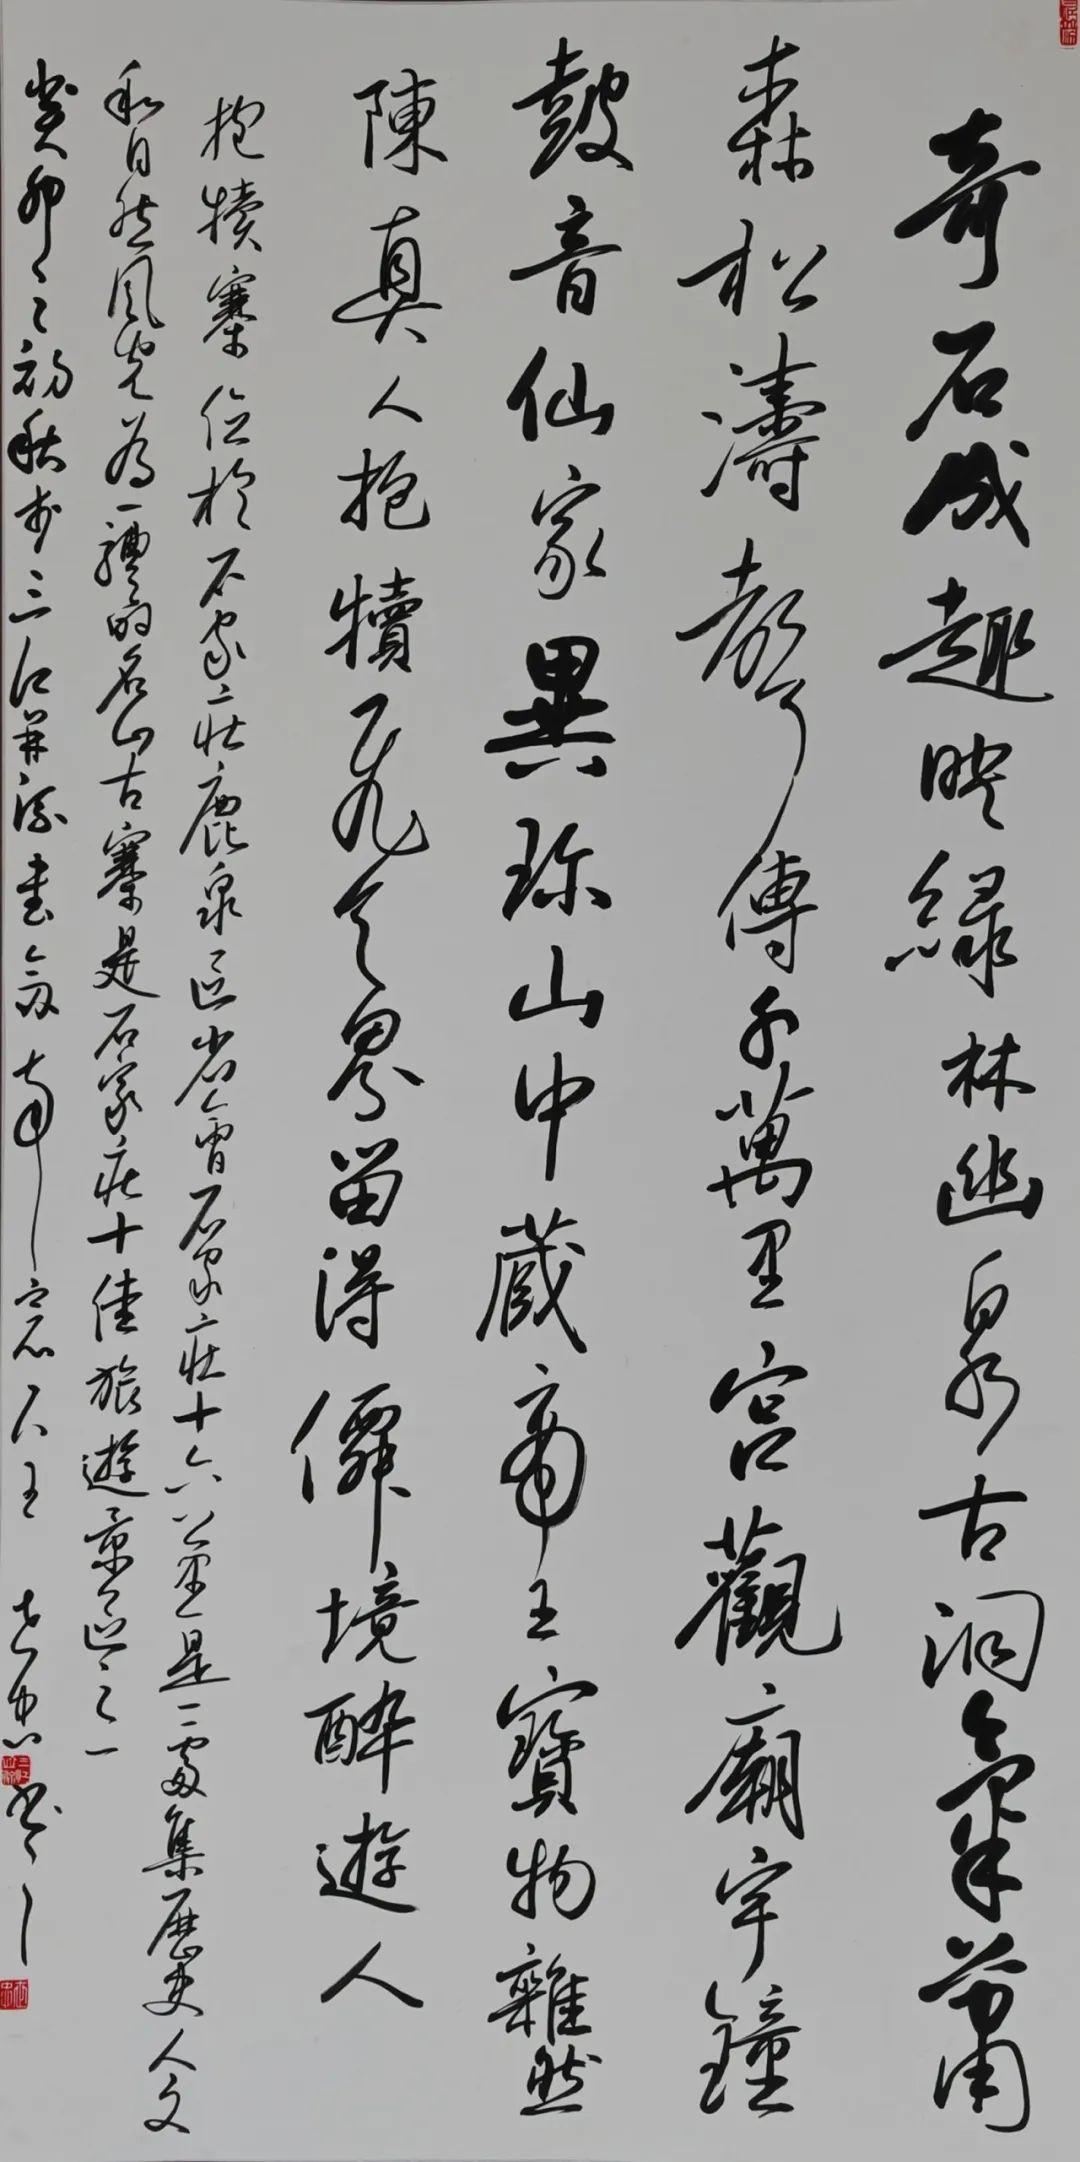 奇石成趣映綠林幽泉古洞氣蕭
森松濤聲傳千萬里宮觀廟宇鐘
鼓音仙家異珎山中藏帝王寶物雜然
陳真人抱犢飛天界留得僊境醉遊人
抱犢寨位於石家莊鹿泉區省會石家莊十六公里是一處集歷史人文
和自然風光為一體的名山古寨是石家莊十佳旅遊景區之一
癸卯之初秋於三江並流書  王志忠書